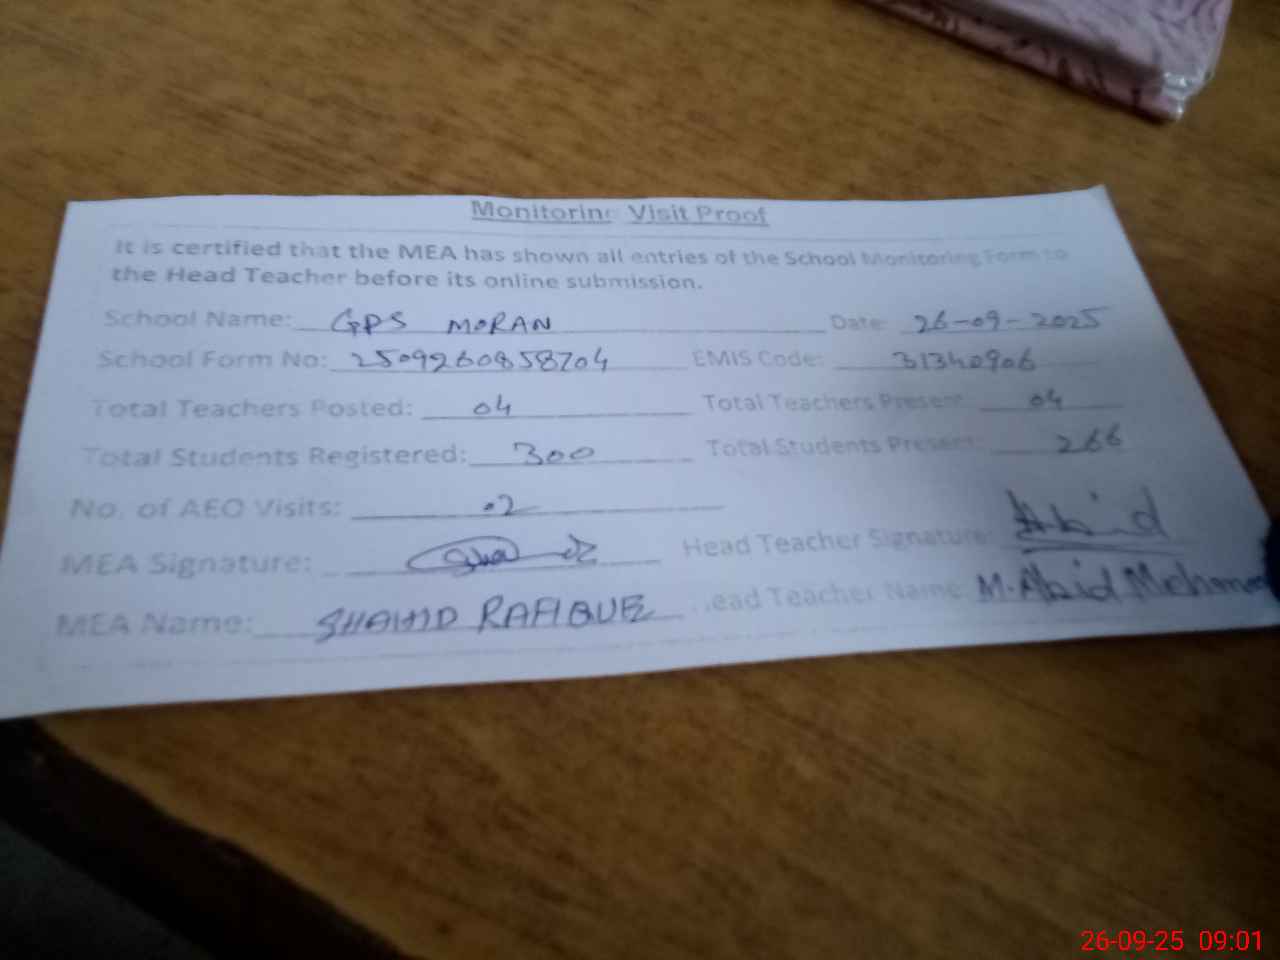 Monitoring Visit Proof
It is certified that the MEA has shown all entries of the School Monitoring Form to
the Head Teacher before its online submission.
School Name: GPS MORAN Date: 26-09-2025
School Form No: 2509260858704 EMIS Code: 31340906
Total Teachers Posted: 04 Total Teachers Present: 04
Total Students Registered: 300 Total Students Present: 266
No. of AEO Visits: 02
MEA Signature: Head Teacher Signature: Abid
MEA Name: SHAHID RAFIQUE Head Teacher Name: M. Abid Mehmo
26-09-25 09:01